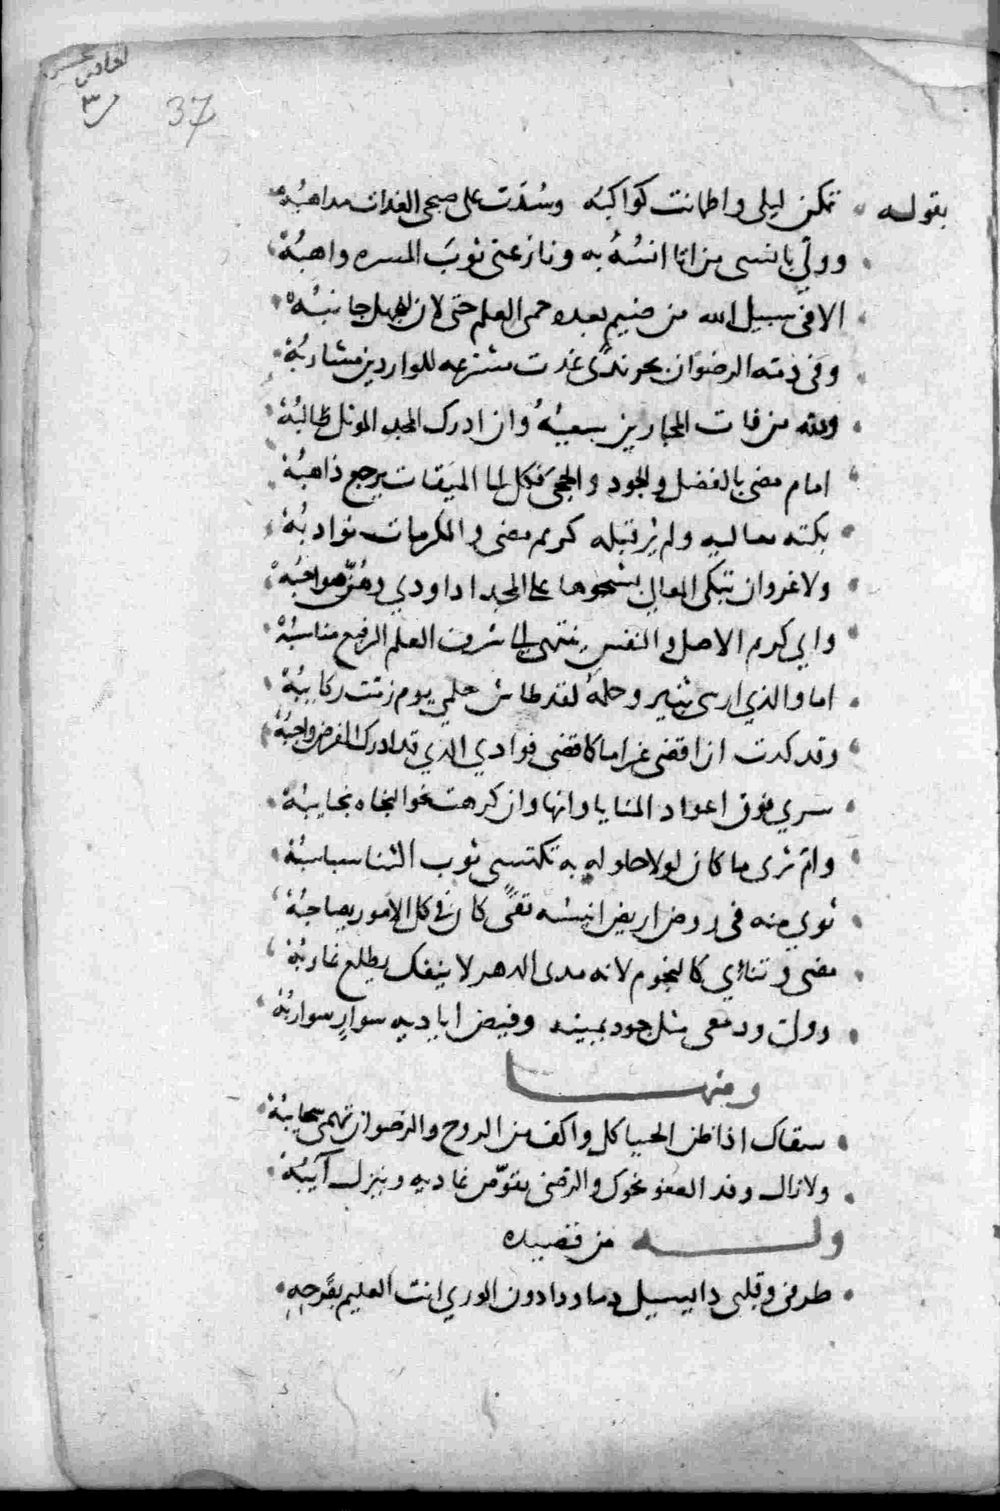 37
بقوله تمكن ليلى واطمانت كواكبه وسُدّت على صبحى الغداة مذاهبُه
وولّي بانسى من انا انسُهُ به ونازعنى ثوبَ المسره واهبُهُ
الا فى سبيل الله من ضيم بعده حمى العلم حتى لان للجهل جانبُهُ
وفى ذمته الرضوان بحر ندًى غدت مشرعه للواردين مشاربُهُ
ولله من فات المجارين سعيُهُ وان ادرك المجد الموثل طالبُهُ
امام مضى بالفضل والجود والحجى فكل لما الميقات يرجع ذاهبُهُ
بكته معاليه ولم يُر قبله كريم مضى والمكرمات نوادبُهُ
ولا غرو ان تبكى المعالي بشجوها على المجد اذ اودي وهُنّ صواحبُهُ
واي كريم الاصل والنفس ينتهى الى شرف العلم الرفيع مناسبُهُ
اما والذي ارسى ثبير وحلمُهُ لقد طاش حلمى يوم زمّت ركايبُهُ
وقد كدت ان اقضى غراما كما قضى فوادي الذي قد ادرك الفرض واجبُهُ
سري فوق اعواد المنايا وانها وان كرهت نحو النجاه نجايبُهُ
وامّ ثرى ما كان لولا حلوله به تكتسى ثوب الثنا سباسبُهُ
ثوي منه فى روض اريض انيسُه تقًى كان فى كل الامور يصاحبُهُ
مضى وتناؤي كالنجوم لانه مدى الدهر لا ينفك يطلع غاربُهُ
وولت ودمعى مثل جود يمينه وفيض اياديه سوارٍ سواربُهُ
ومنها
سقاك اذا ظن الحيا كل واكف من الروح والرضوان تهمى سحايبُهُ
ولا زال وفد العفو نحوك والرضى يقوّض غاديه وينزل آيبُهُ
وله من قصيده
طرفى وقلبى ذا يسيل دما وذا دون الوري انت العليم بقرحِهِ